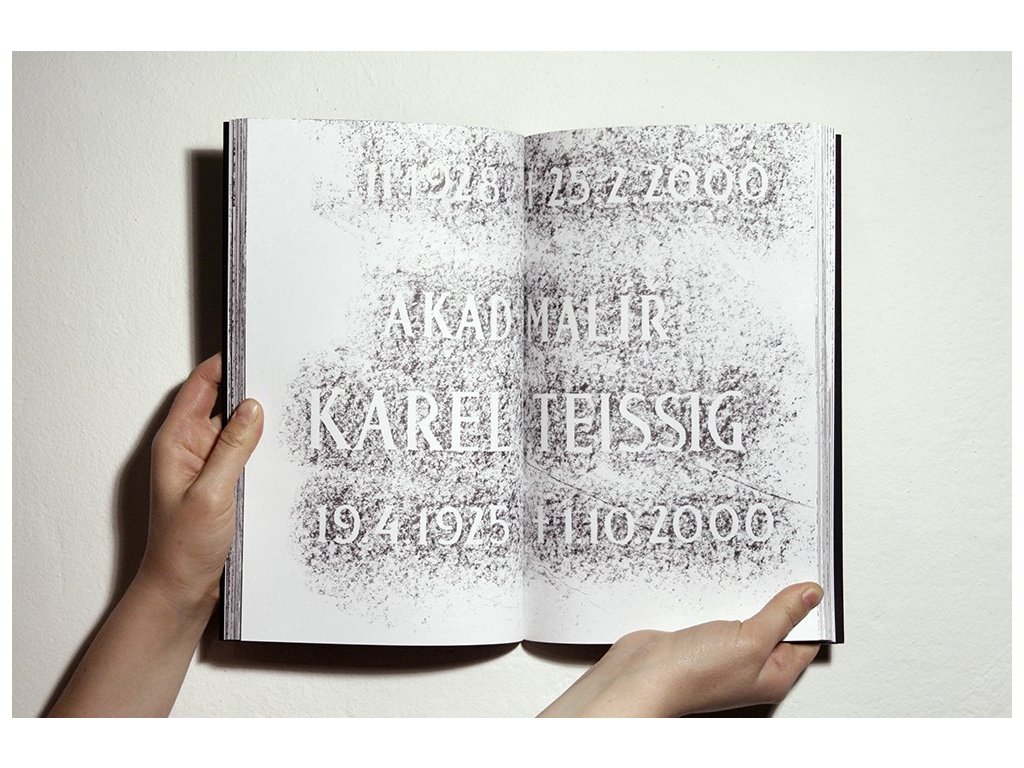 11.1.1928 † 25.2.2000
AKAD MALIR
KAREL TEISSIG
19.4.1925 † 1.10.2000